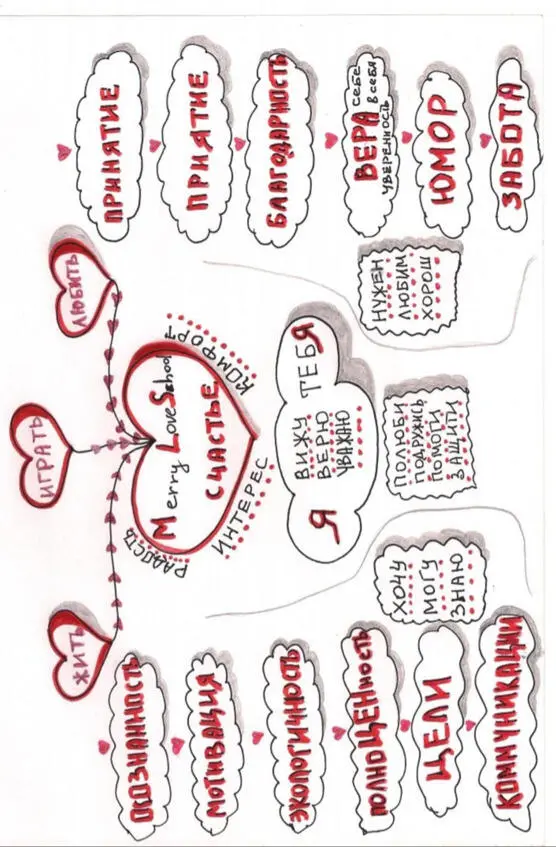 ЖИТЬ
ИГРАТЬ
ЛЮБИТЬ
ОСОЗНАННОСТЬ
МОТИВАЦИЯ
ЭКОЛОГИЧНОСТЬ
ПОЛНОЦЕНность
ЦЕЛИ
КОММУНИКАЦИИ
Merry Love School
СЧАСТЬЕ
РАДОСТЬ
ИНТЕРЕС
КОМФОРТ
Я
ВИЖУ
ВЕРЮ
УВАЖАЮ
ТЕБЯ
ХОЧУ
МОГУ
ЗНАЮ
ПОЛЮБИ
ПОДРУЖИСЬ
ПОМОГИ
ЗАЩИТИ
НУЖЕН
ЛЮБИМ
ХОРОШ
ПРИНЯТИЕ
ПРИЯТИЕ
БЛАГОДАРНОСТЬ
ВЕРА себе
в себя
УВЕРЕННОСТЬ
ЮМОР
ЗАБОТА